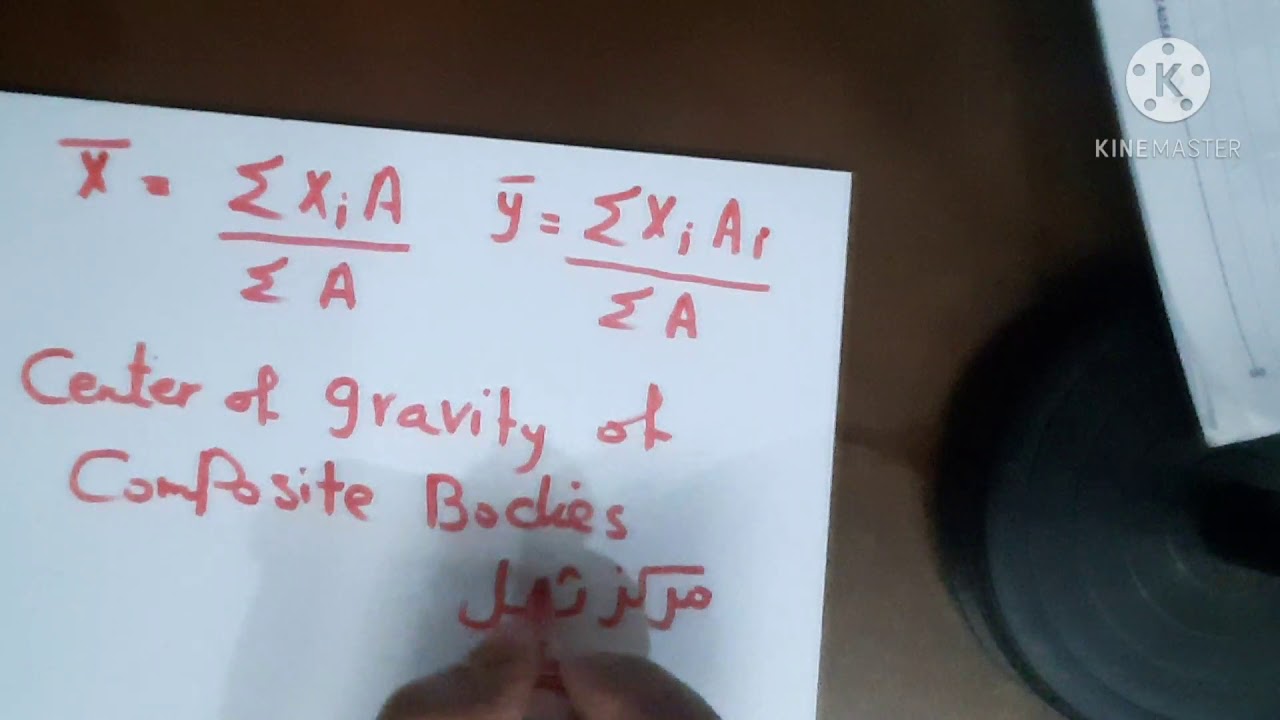 x̄ = Σ xᵢ A / Σ A ȳ = Σ xᵢ Aᵢ / Σ A
Center of gravity of
Composite Bodies
مركز ثقل
K
KINEMASTER